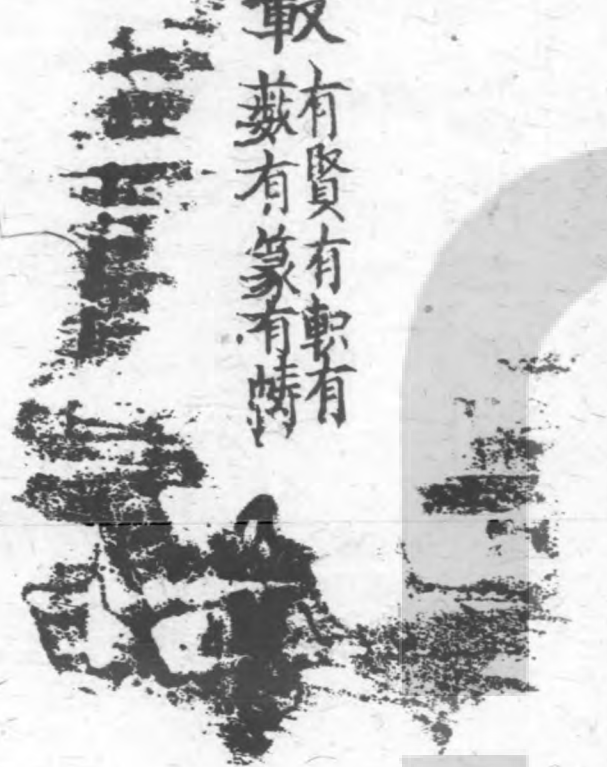 轂
有賢有軹有
藪有篆有幬